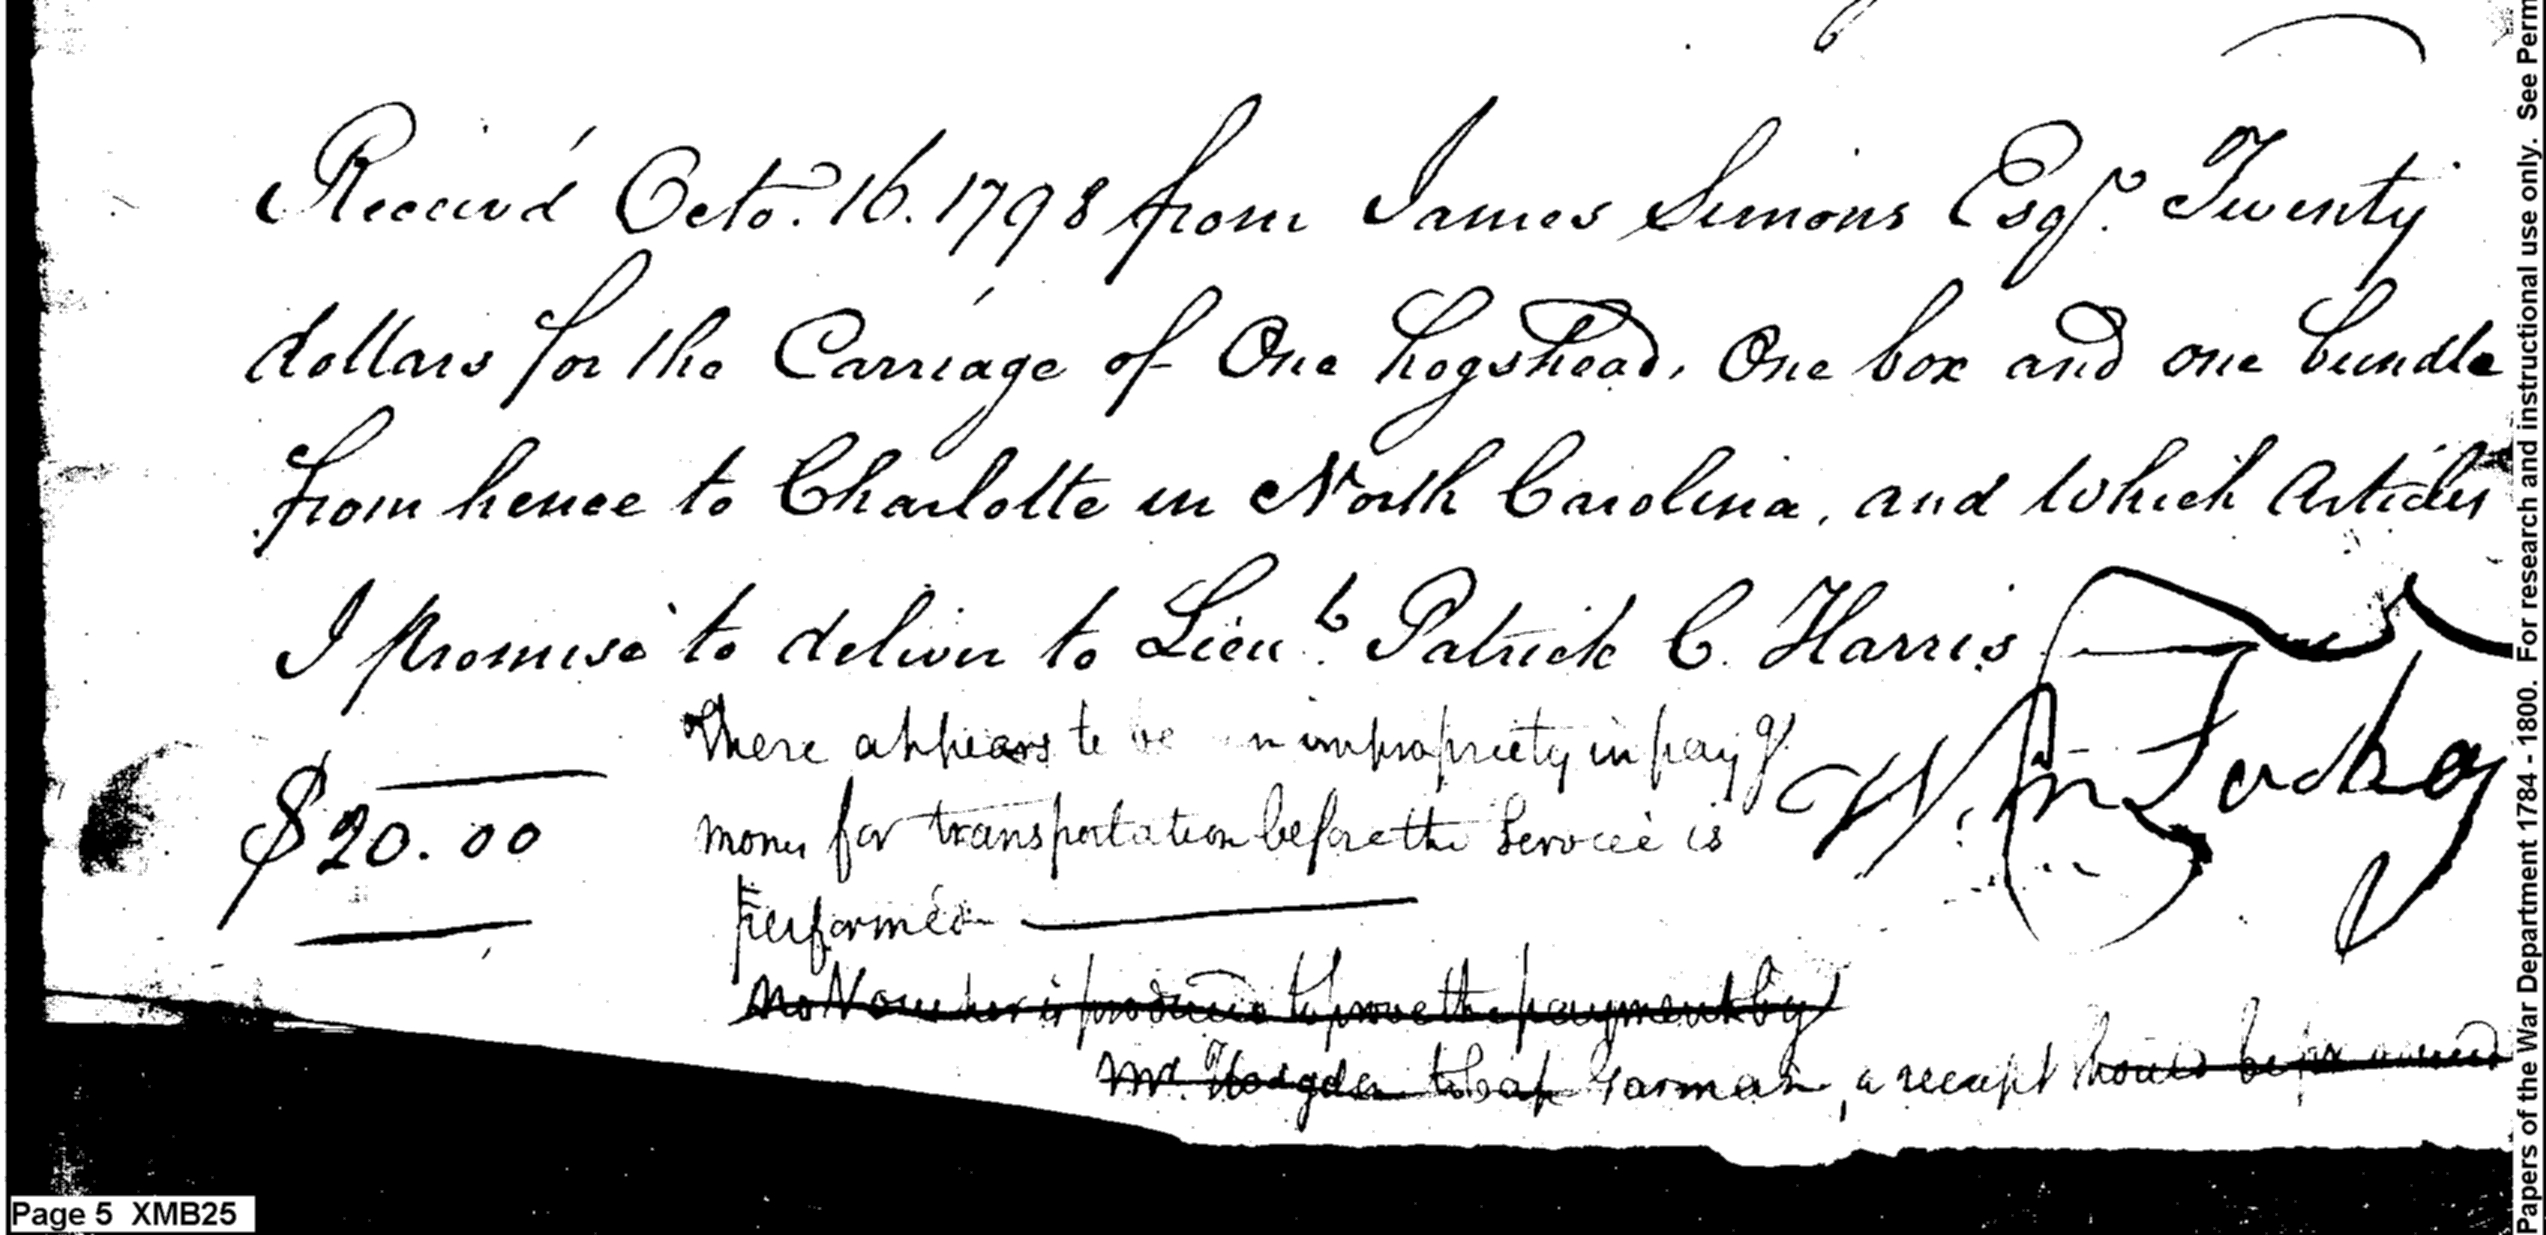 Receiv'd Octo. 16. 1798 from James Simons Esqr. Twenty
dollars for the Carriage of One hogshead, One box and one bundle
from hence to Charlotte in North Carolina, and which Articles
I promise to deliver to Lieut. Patrick C. Harris
There appears to be an impropriety in payg
$20.00
money for transportation before the Service is
Wm
performed
No Voucher is produced to prove the payment by
Mr. Hodgdon to Capt Garman, a receipt should be
Page 5 XMB25
Papers of the War Department 1784 - 1800. For research and instructional use only. See Perm